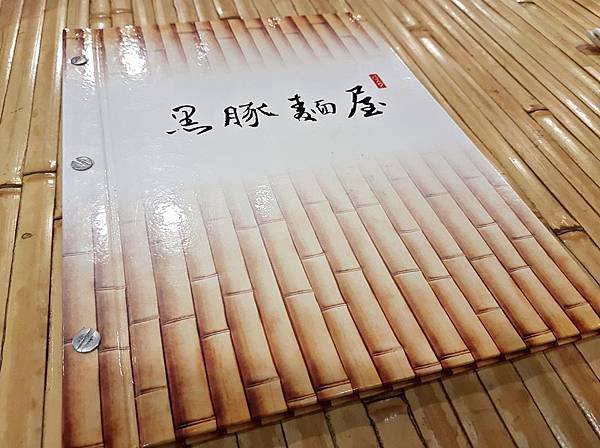 黑豚麵屋